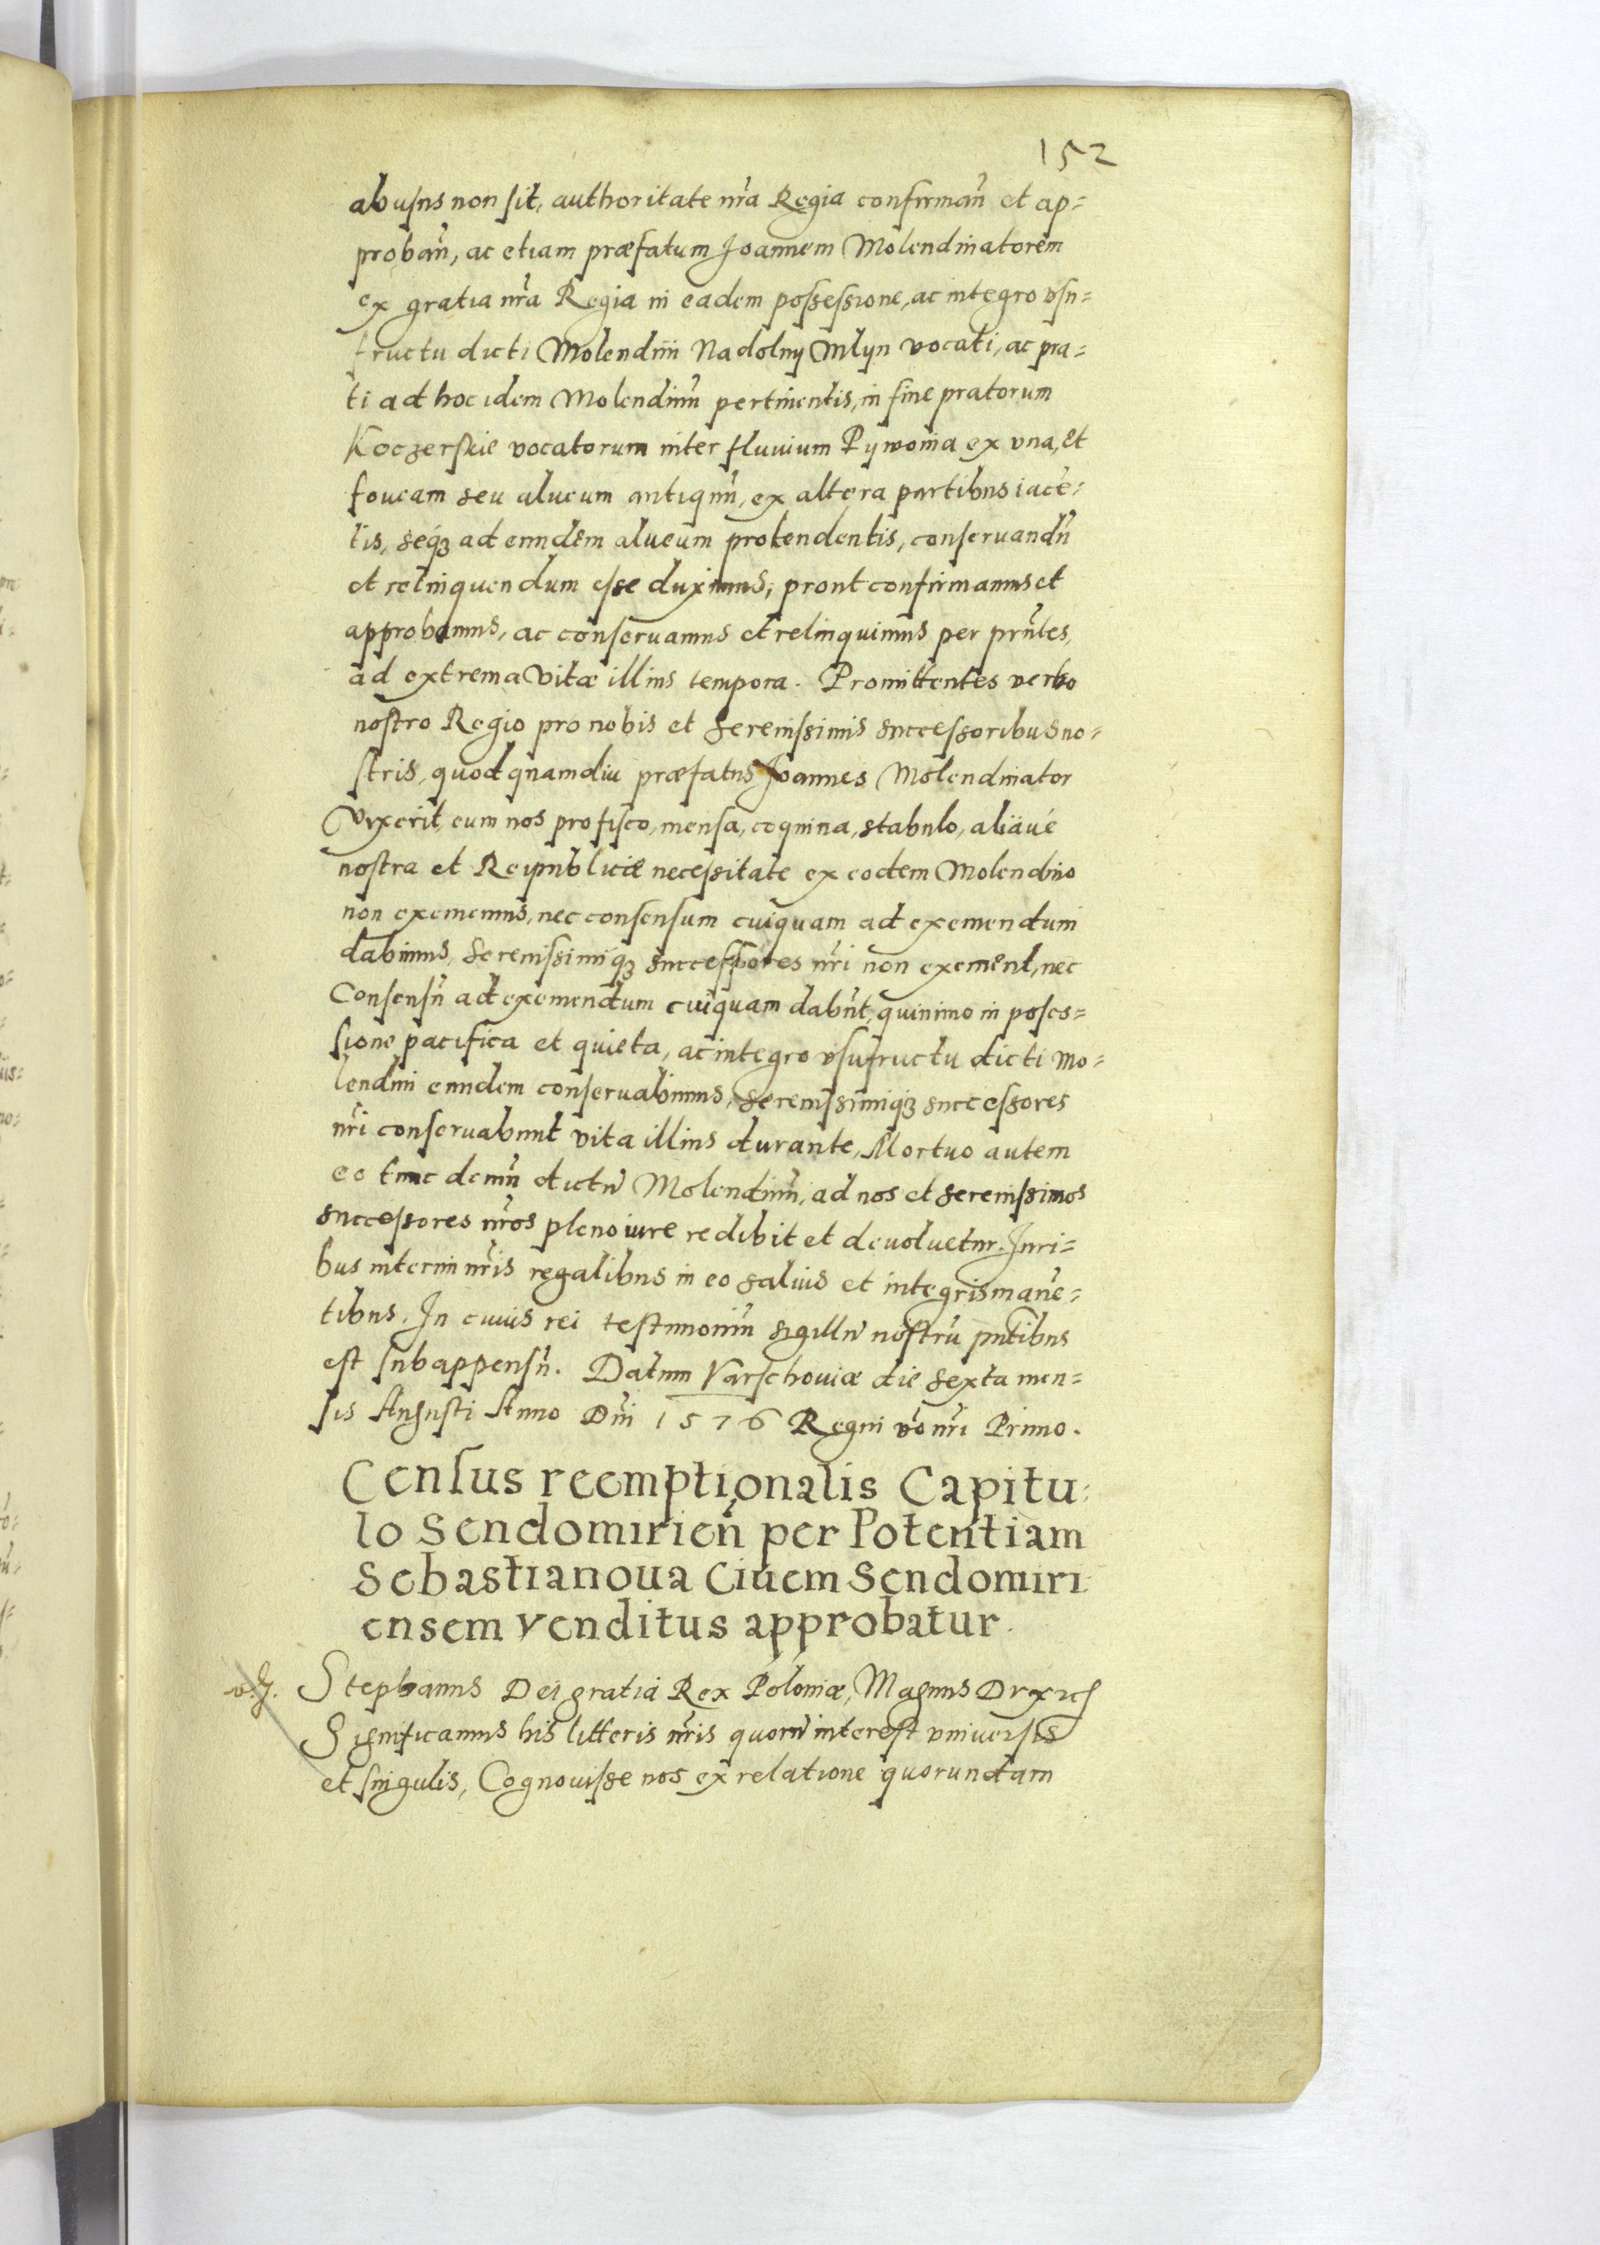 152
abusus non sit, authoritate nr̃a Regia confirman̄ et ap=
proban̄, ac etiam præfatum Joannem Molendinatorem
ex gratia nr̃a Regia in eadem possessione, ac integro vsu=
fructu dicti Molendini Nadolny Mlyn vocati, ac pra=
ti ad hoc idem Molendinū pertinentis, in fine pratorum
Koczerskie vocatorum inter fluuium Pywonia ex vna, et
foueam seu alueum antiquū, ex altera partibus iacē=
tis, seq3 ad eundem alueum protendentis, conseruandū
et relinquendum esse duximus, prout confirmamus et
approbamus, ac conseruamus et relinquimus per prñtes,
ad extrema vitæ illius tempora. Promittentes verbo
nostro Regio pro nobis et serenissimis successoribus no=
stris, quod quamdiu præfatus Joannes Molendinator
vixerit, eum nos pro fisco, mensa, coquina, stabulo, aliaue
nostra et Reipublicæ necessitate ex eodem Molendino
non exememus, nec consensum cuiquam ad exemendum
dabimus, Serenissimiq3 successores nr̃i non exement, nec
Consensū ad exemendum cuiquam dabūt, quinimo in posses=
sione pacifica et quieta, ac integro vsufructu dicti Mo=
lendini eundem conseruabimus, serenissimiq3 successores
nr̃i conseruabunt vita illius durante, Mortuo autem
eo tunc demū dictū Molendinū, ad nos et serenissimos
successores nr̃os pleno iure redibit et deuoluetur. Juri=
bus interim nr̃is regalibus in eo saluis et integris manē=
tibus. In cuius rei testimoniū sigillū nostrū pn̄tibus
est subappensū. Datum Varschouiæ die sexta men=
sis Augusti Anno Dñi 1576 Regni v̄o nr̃i Primo.
Census reemptionalis Capitu:
lo Sendomirień per Potentiam
Sebastianoua Ciuem Sendomiri
ensem venditus approbatur.
Stephanus Dei gratia Rex Poloniæ, Magnus Dux
Significamus his litteris nr̃is quorū interest vniuersis
et singulis, Cognouisse nos ex relatione quorundam